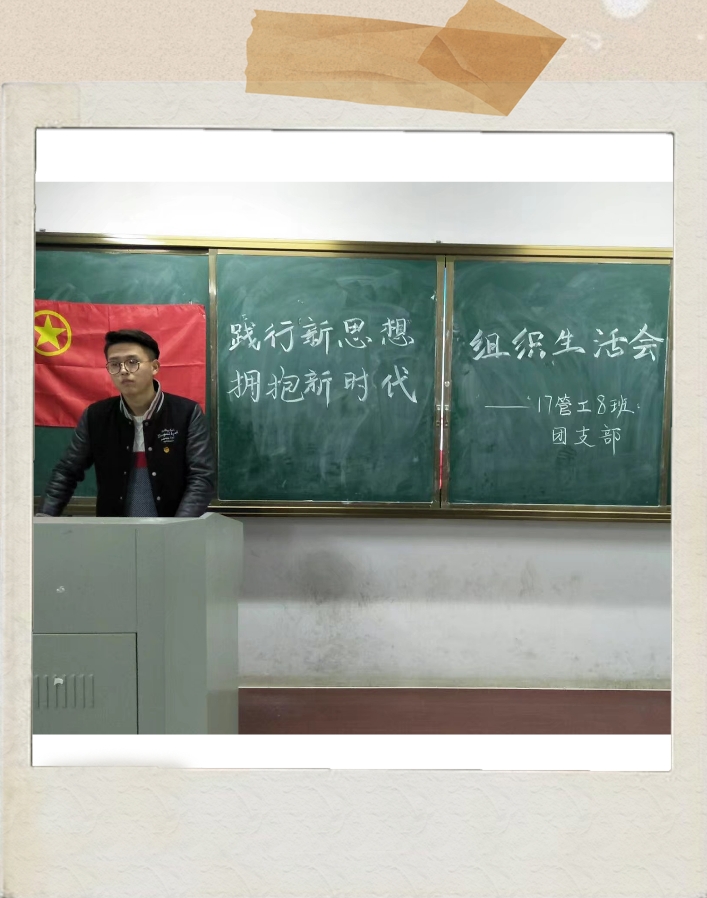 践行新思想
拥抱新时代
组织生活会
——'17管工8班
团支部